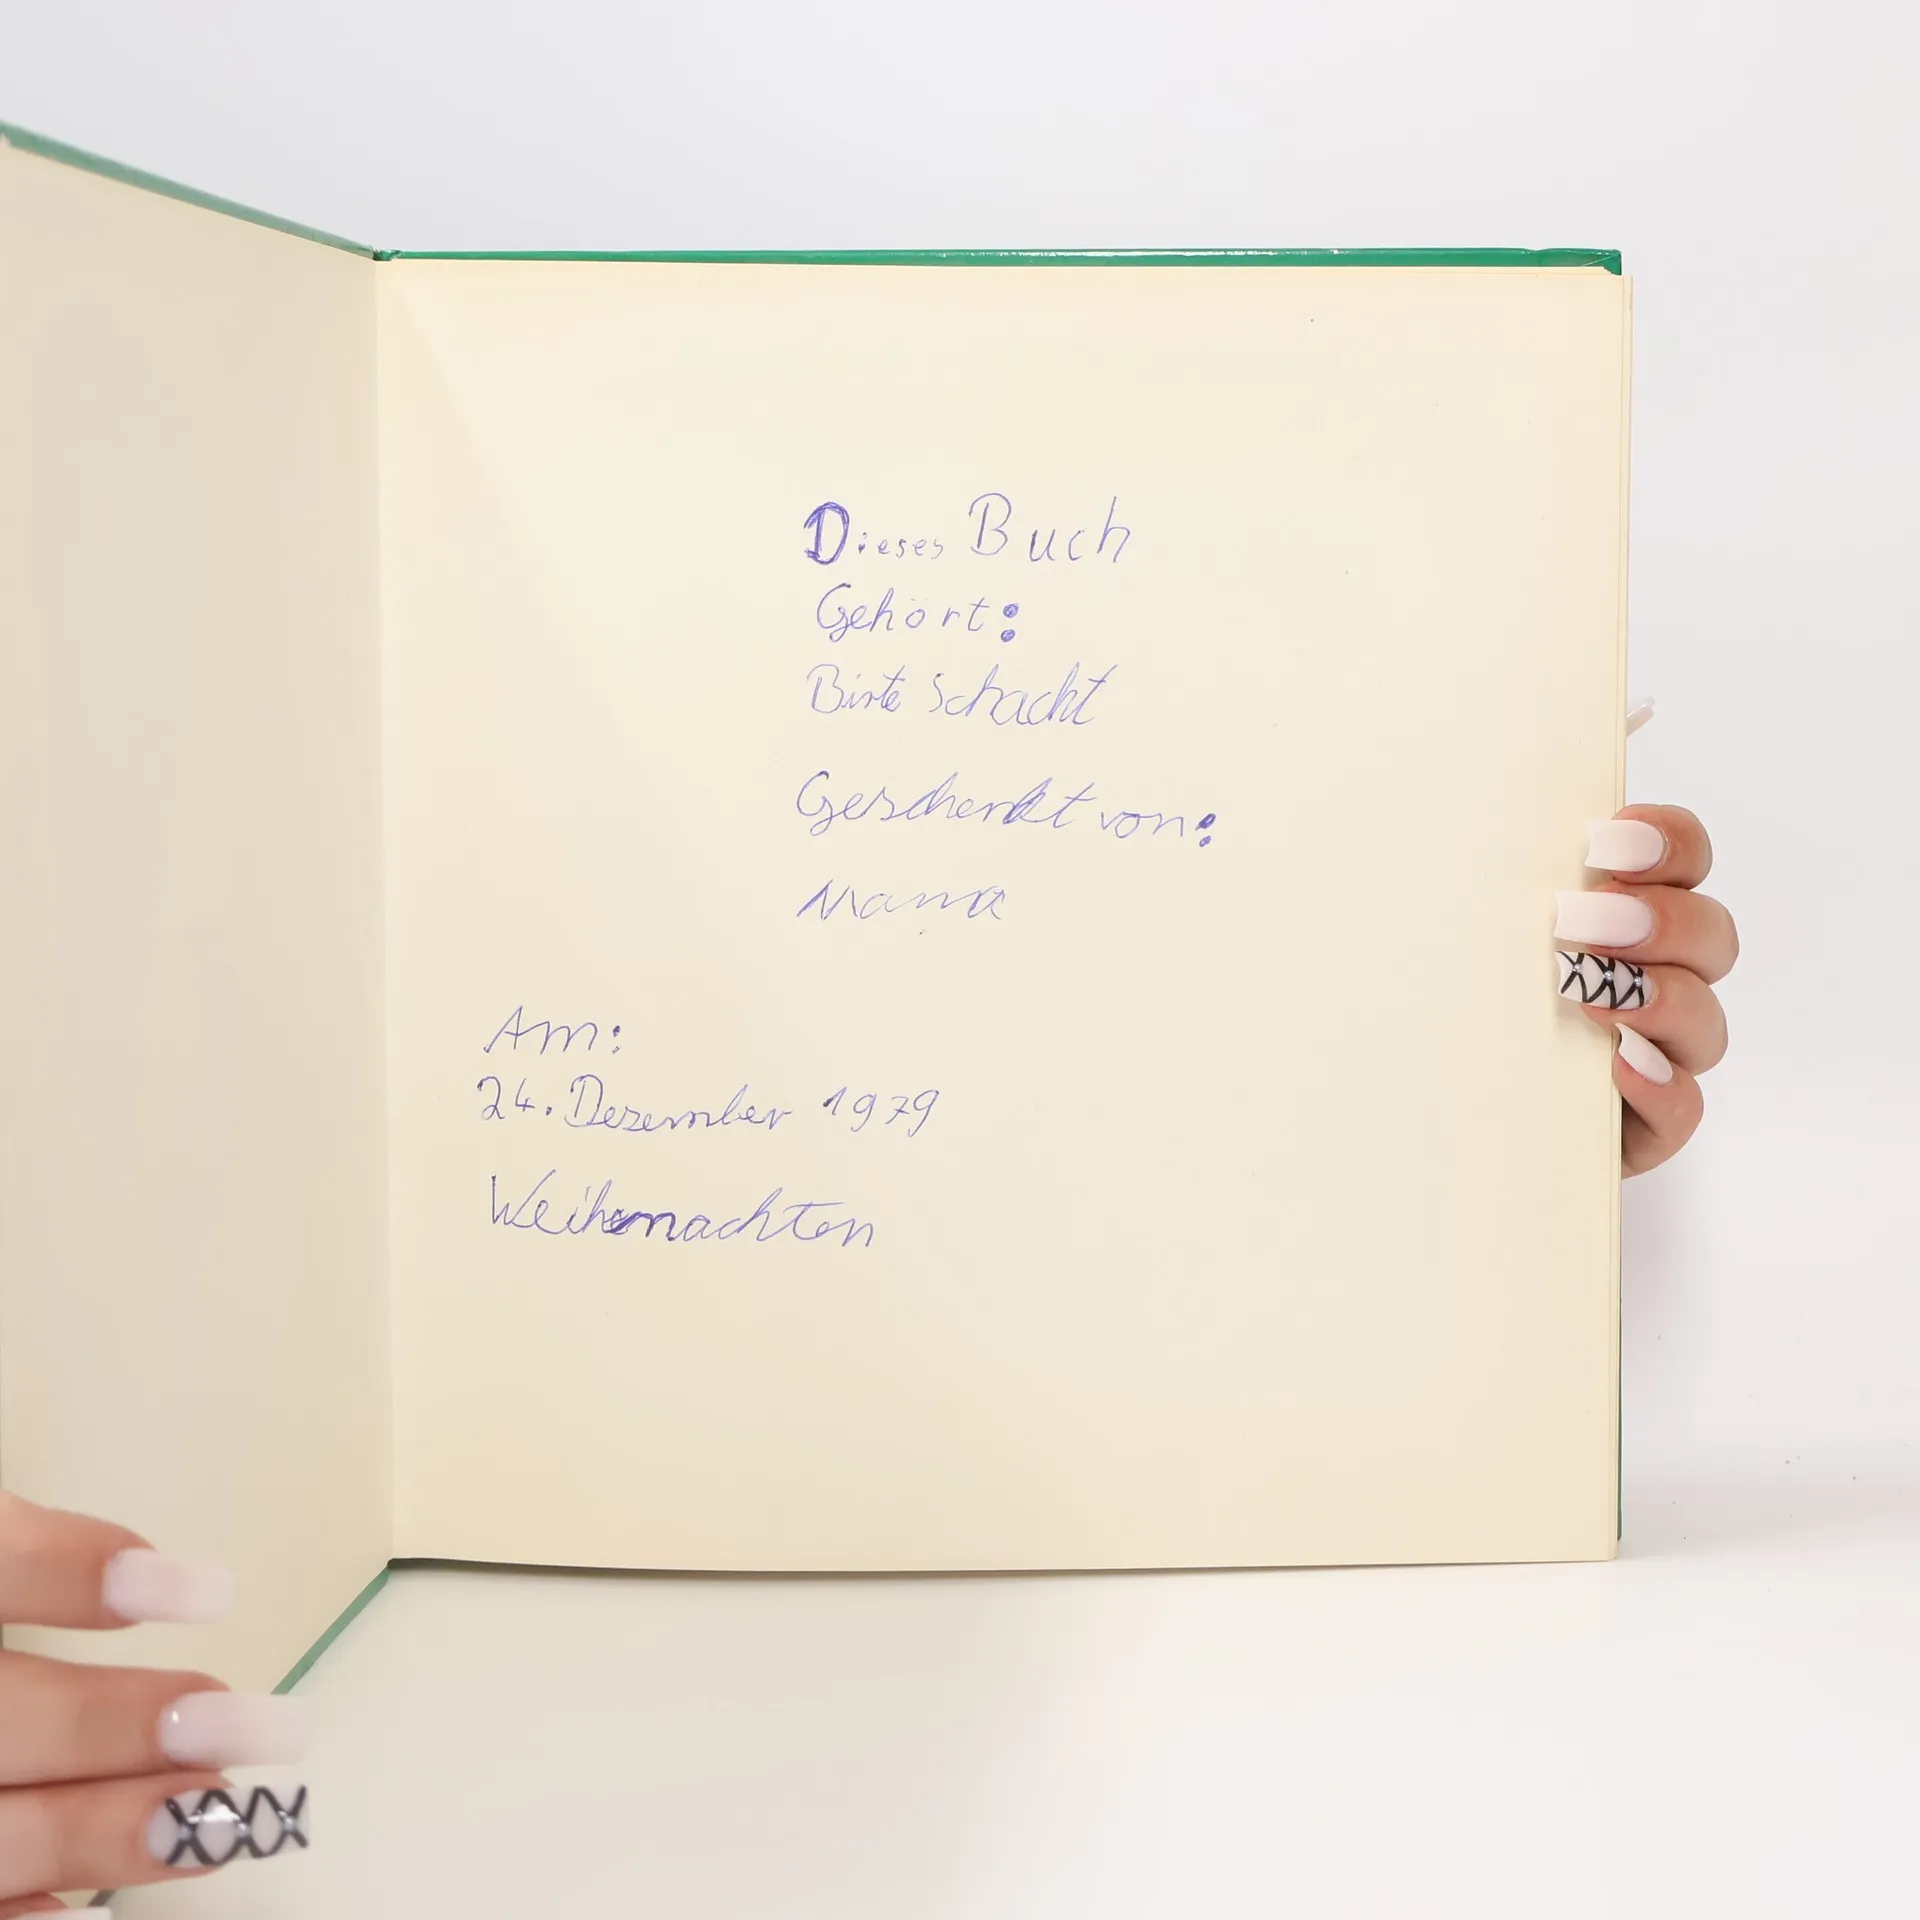 Dieses Buch
Gehört:
Birte Schacht
Geschenkt von:
Mama
Am:
24. Dezember 1979
Weihnachten